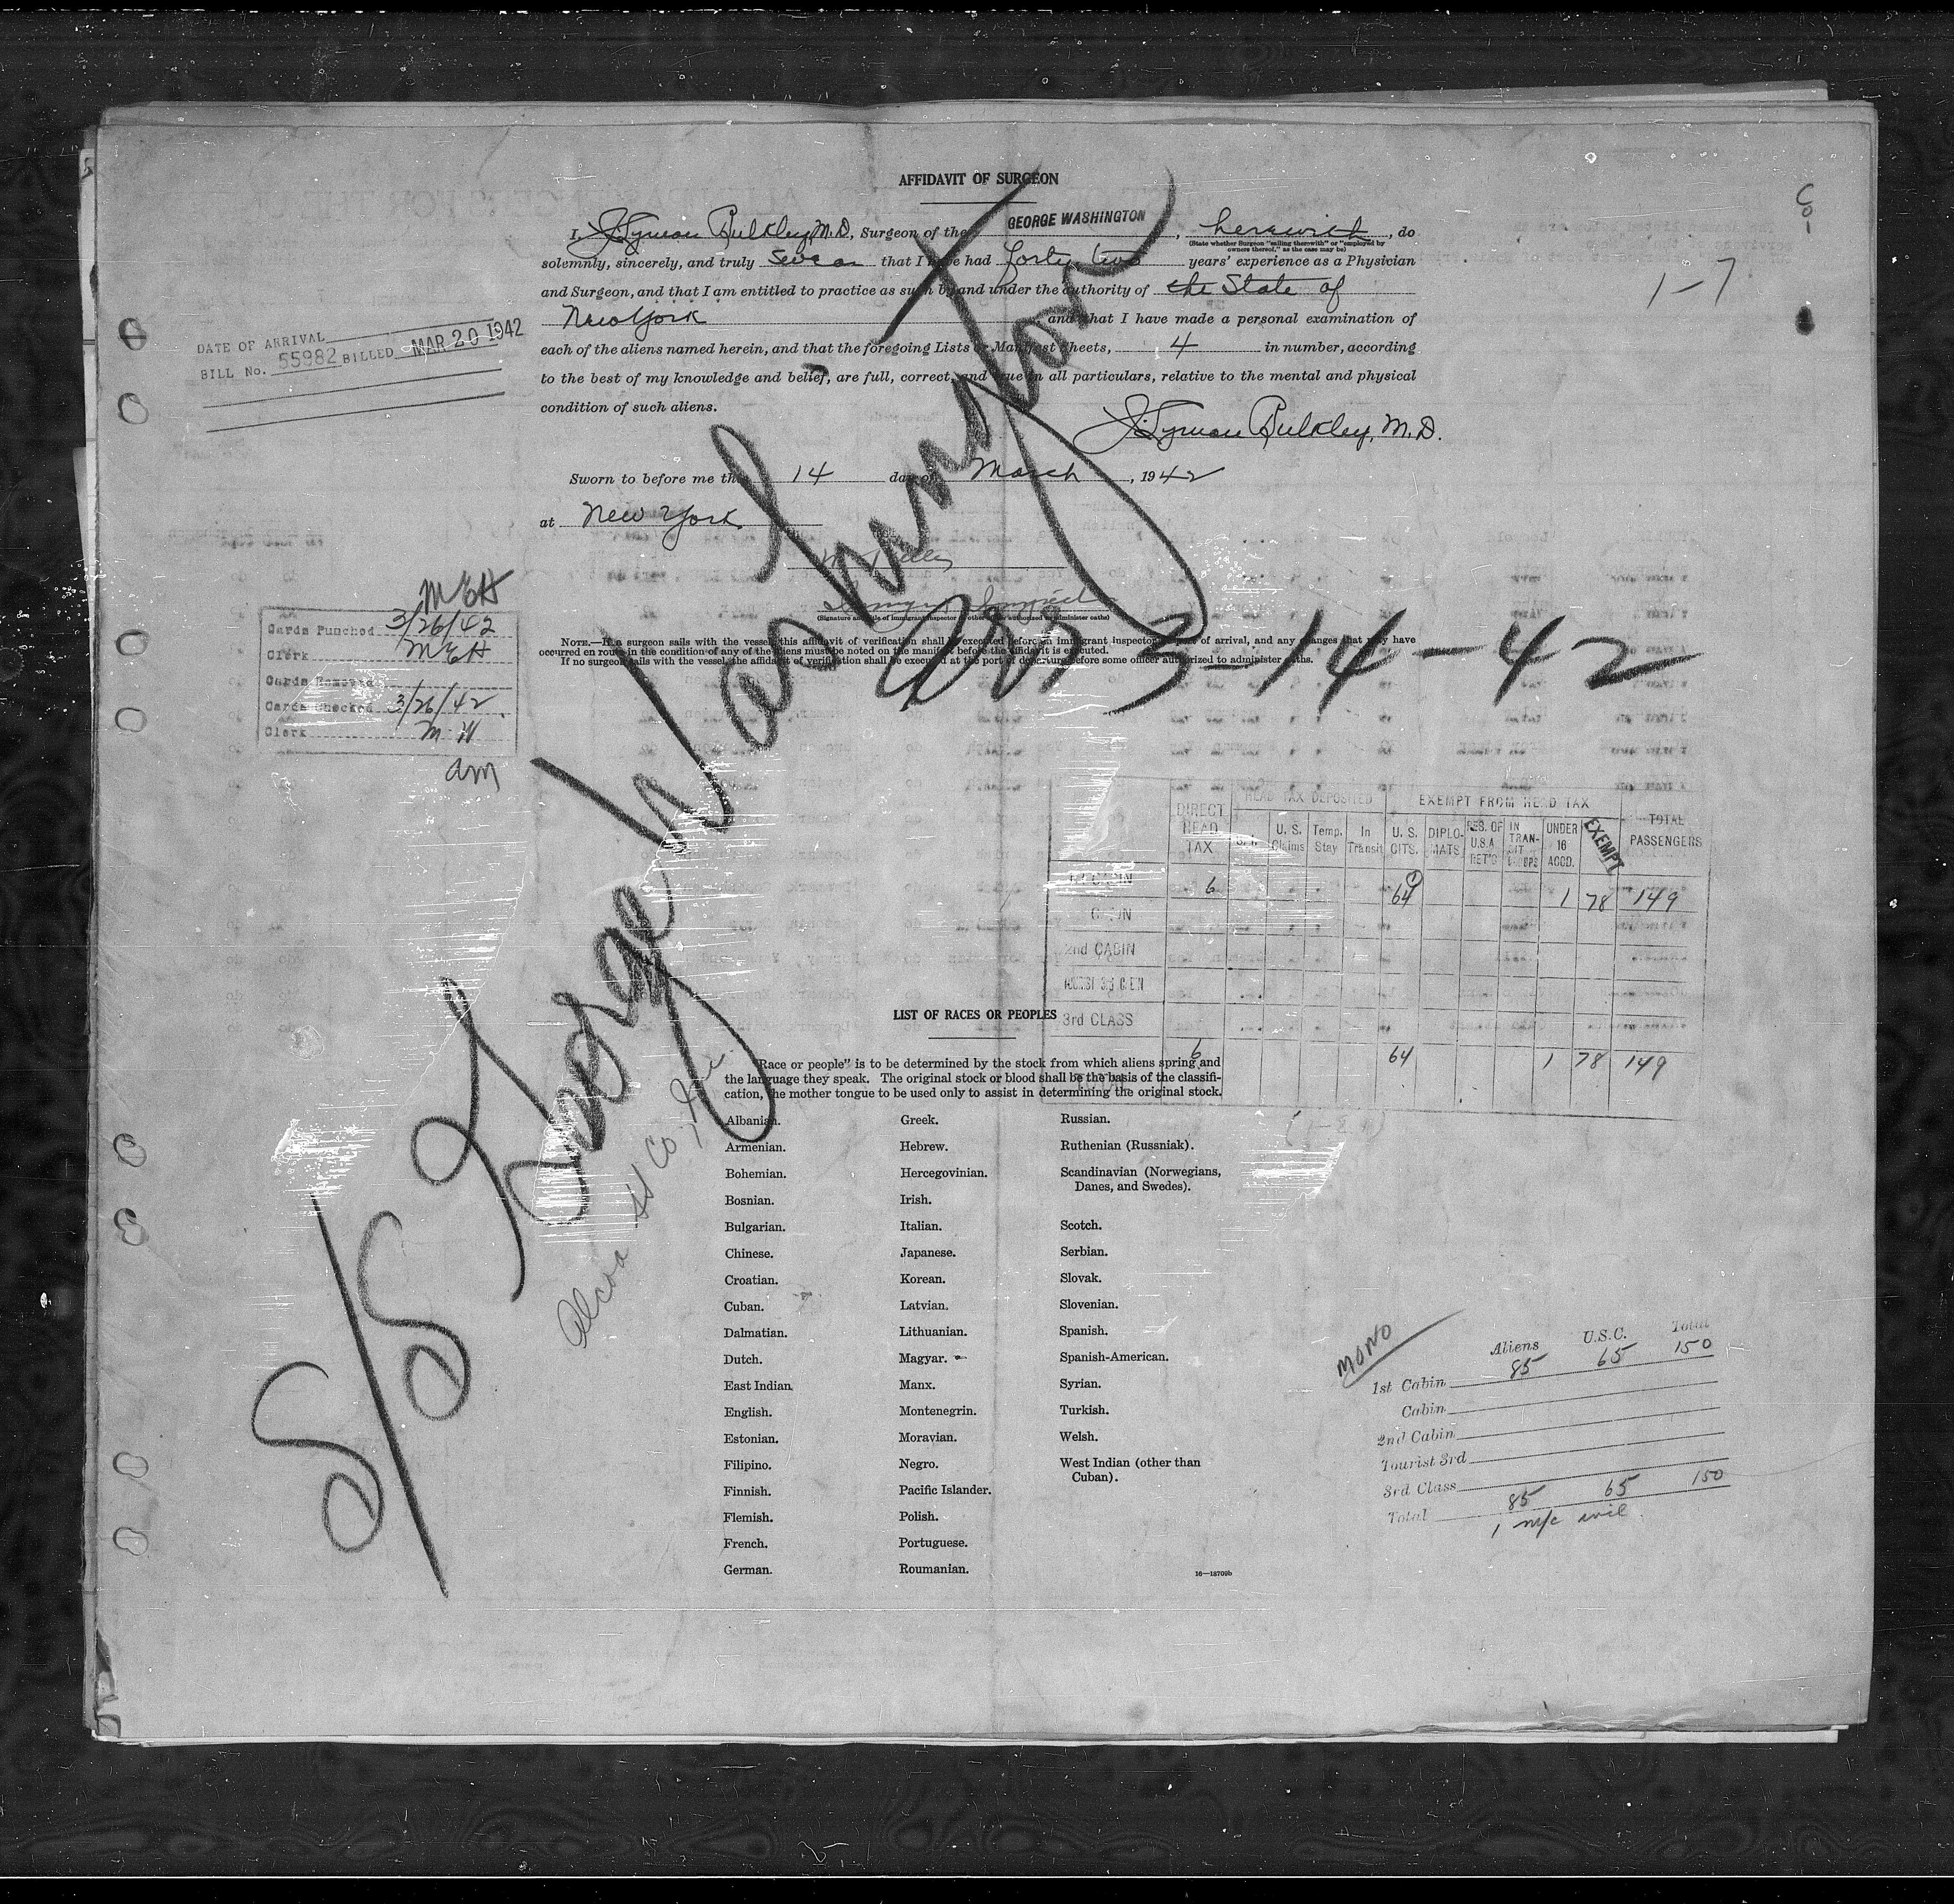 AFFIDAVIT OF SURGEON
I, J. Lyman Bulkley, M.D., Surgeon of the GEORGE WASHINGTON, herewith, do
(State whether Surgeon "sailing therewith" or "employed by owners thereof," as the case may be)
solemnly, sincerely, and truly swear that I have had forty two years' experience as a Physician
and Surgeon, and that I am entitled to practice as such by and under the authority of the State of
New York and that I have made a personal examination of
each of the aliens named herein, and that the foregoing Lists or Manifest Sheets, 4 in number, according
to the best of my knowledge and belief, are full, correct, and true in all particulars, relative to the mental and physical
condition of such aliens.
J. Lyman Bulkley, M.D.
Sworn to before me this 14 day of March, 1942
at New York
(Signature and title of immigrant inspector or other officer authorized to administer oaths)
NOTE.—If a surgeon sails with the vessel, this affidavit of verification shall be executed before an immigrant inspector at port of arrival, and any changes that may have
occurred en route in the condition of any of the aliens must be noted on the manifest before the affidavit is executed.
If no surgeon sails with the vessel, the affidavit of verification shall be executed at the port of departure before some officer authorized to administer oaths.
1-7
DATE OF ARRIVAL
BILL No. 55982 BILLED MAR 20 1942
MEH
Cards Punched 3/26/42
Clerk MEH
Cards Removed
Cards Checked 3/26/42
Clerk
am
S/S George Washington
Arr 3-14-42
Alcoa SS Co, Inc.
DIRECT HEAD TAX
HEAD TAX DEPOSITED
EXEMPT FROM HEAD TAX
TOTAL PASSENGERS
U. S. Claims
Temp. Stay
In Transit
U. S. CITS.
DIPLOMATS
RES. OF U.S.A RET'G
IN TRANSIT GROUPS
UNDER 16 ACCD.
EXEMPT
1st CABIN 6 64 1 78 149
CABIN
2nd CABIN
TOURIST 3rd CABIN
3rd CLASS
TOTAL 6 64 1 78 149
LIST OF RACES OR PEOPLES
"Race or people" is to be determined by the stock from which aliens spring and
the language they speak. The original stock or blood shall be the basis of the classifi-
cation, the mother tongue to be used only to assist in determining the original stock.
Albanian.
Armenian.
Bohemian.
Bosnian.
Bulgarian.
Chinese.
Croatian.
Cuban.
Dalmatian.
Dutch.
East Indian
English.
Estonian.
Filipino.
Finnish.
Flemish.
French.
German.
Greek.
Hebrew.
Hercegovinian.
Irish.
Italian.
Japanese.
Korean.
Latvian.
Lithuanian.
Magyar.
Manx.
Montenegrin.
Moravian.
Negro.
Pacific Islander.
Polish.
Portuguese.
Roumanian.
Russian.
Ruthenian (Russniak).
Scandinavian (Norwegians,
Danes, and Swedes).
Scotch.
Serbian.
Slovak.
Slovenian.
Spanish.
Spanish-American.
Syrian.
Turkish.
Welsh.
West Indian (other than
Cuban).
16—18709b
MONO
Aliens U.S.C. Total
1st Cabin 85 65 150
Cabin
2nd Cabin
Tourist 3rd
3rd Class
Total 85 65 150
1 n/c